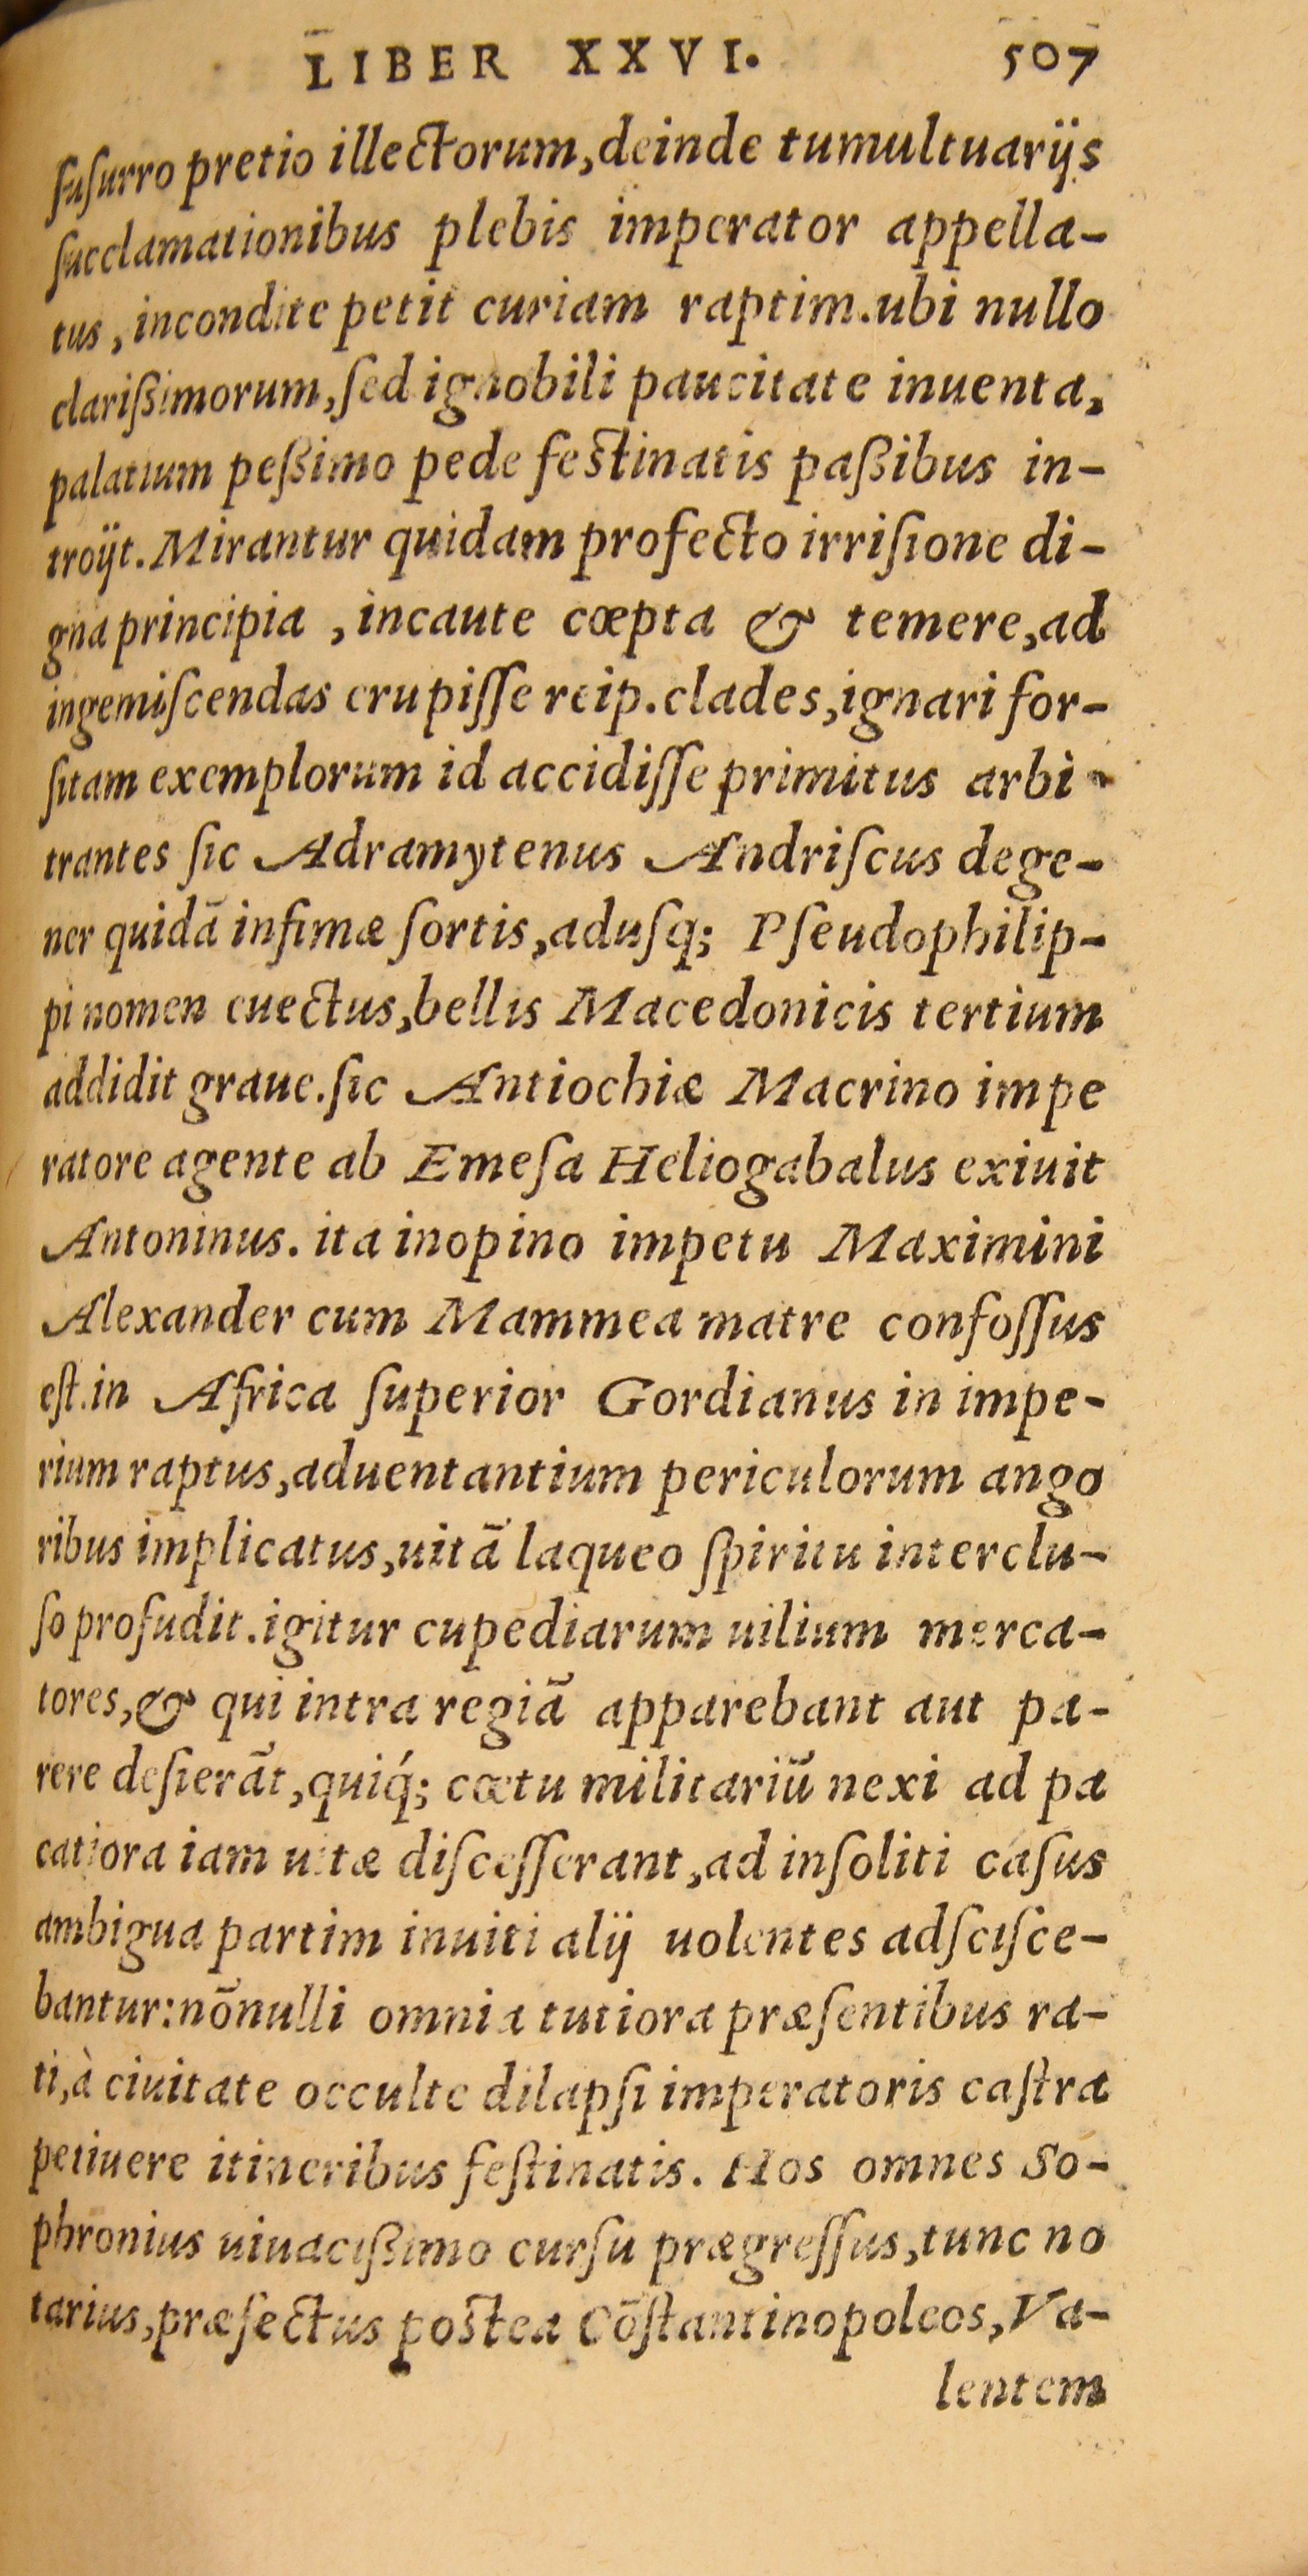 LIBER XXVI. 507
ſuſurro pretio illectorum, deinde tumultuarijs
ſucclamationibus plebis imperator appella-
tus, incondite petit curiam raptim. ubi nullo
clarißimorum, ſed ignobili paucitate inuenta,
palatium peßimo pede feſtinatis paßibus in-
troijt. Mirantur quidam profecto irriſione di-
gna principia, incaute cœpta & temere, ad
ingemiſcendas erupiſſe reip. clades, ignari for-
ſitam exemplorum id accidiſſe primitus arbi-
trantes ſic Adramytenus Andriſcus dege-
ner quidã infimæ ſortis, aduſq; Pſeudophilip-
pi nomen euectus, bellis Macedonicis tertium
addidit graue. ſic Antiochiæ Macrino impe
ratore agente ab Emeſa Heliogabalus exiuit
Antoninus. ita inopino impetu Maximini
Alexander cum Mammea matre confoſſus
eſt. in Africa ſuperior Gordianus in impe-
rium raptus, aduentantium periculorum ango
ribus implicatus, uitã laqueo ſpiritu interclu-
ſo profudit. igitur cupediarum uilium merca-
tores, & qui intra regiã apparebant aut pa-
rere deſierãt, quiq́; cœtu militariũ nexi ad pa
catiora iam uitæ diſceſſerant, ad inſoliti caſus
ambigua partim inuiti alij uolentes adſciſce-
bantur: nõnulli omnia tutiora præſentibus ra-
ti, à ciuitate occulte dilapſi imperatoris caſtra
petiuere itineribus feſtinatis. Hos omnes So-
phronius uiuacißimo curſu prægreſſus, tunc no
tarius, præfectus poſtea Cõſtantinopoleos, Va-
lentem